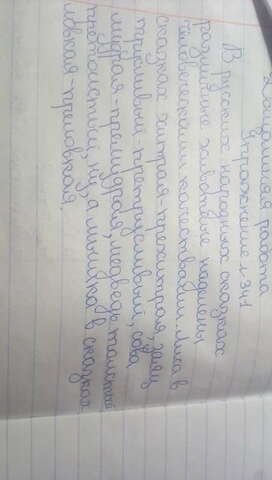 Домашняя работа
Упражнение 341
В русских народных сказках
различные животные наделены
человеческими качествами. Лиса в
сказках хитрая-прехитрая, заяц
трусливый-претрусливый, сова
мудрая-премудрая, медведь толстый
претолстый, ну, а мышка в сказках
ловкая-преловкая.